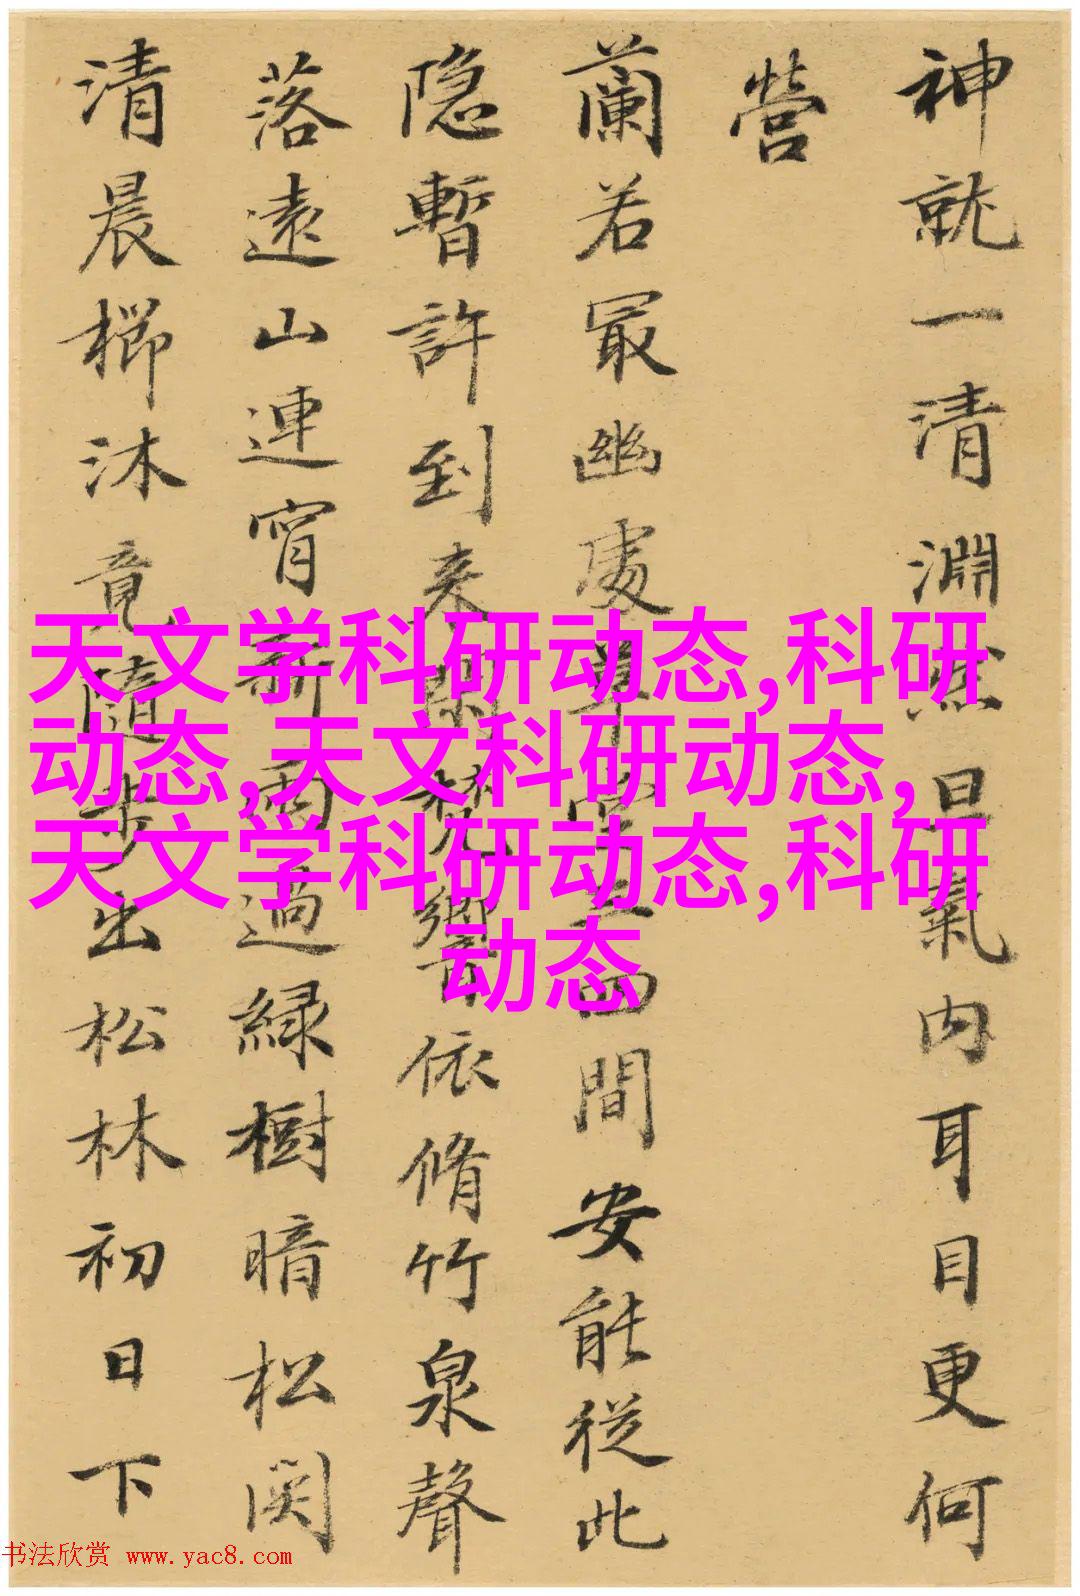 神就一清淵然旦氣内耳目更何
營
蘭若冣幽處草堂四間安能從此
隐暫許到来聞梵響依脩竹泉聲
落遠山連宵新雨過緑樹暗松関
清晨櫛沐竟隨步出松林初日下
天文学科研动态,科研
动态,天文科研动态,
天文学科研动态,科研
动态
书法欣赏 www.yac8.com